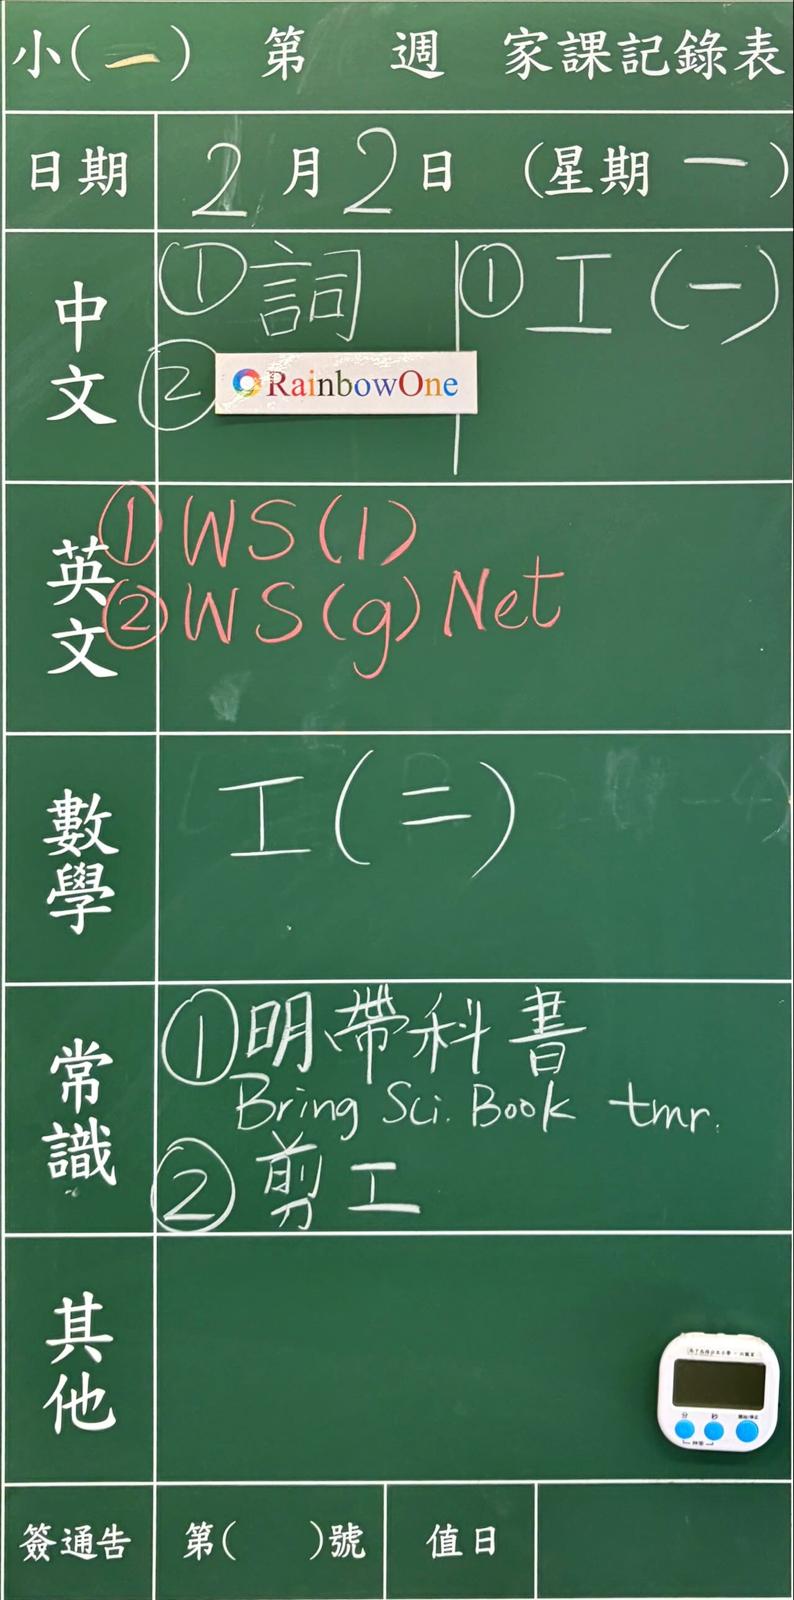 小(一) 第 週 家課記錄表
日期 2月2日 (星期一)
中文
①詞
② RainbowOne
①工(一)
英文
①WS(1)
②WS(g) Net
數學
工(二)
常識
①明帶科書
Bring Sci. Book tmr.
②剪工
其他
分 秒 開始/停止
簽通告 第( )號 值日